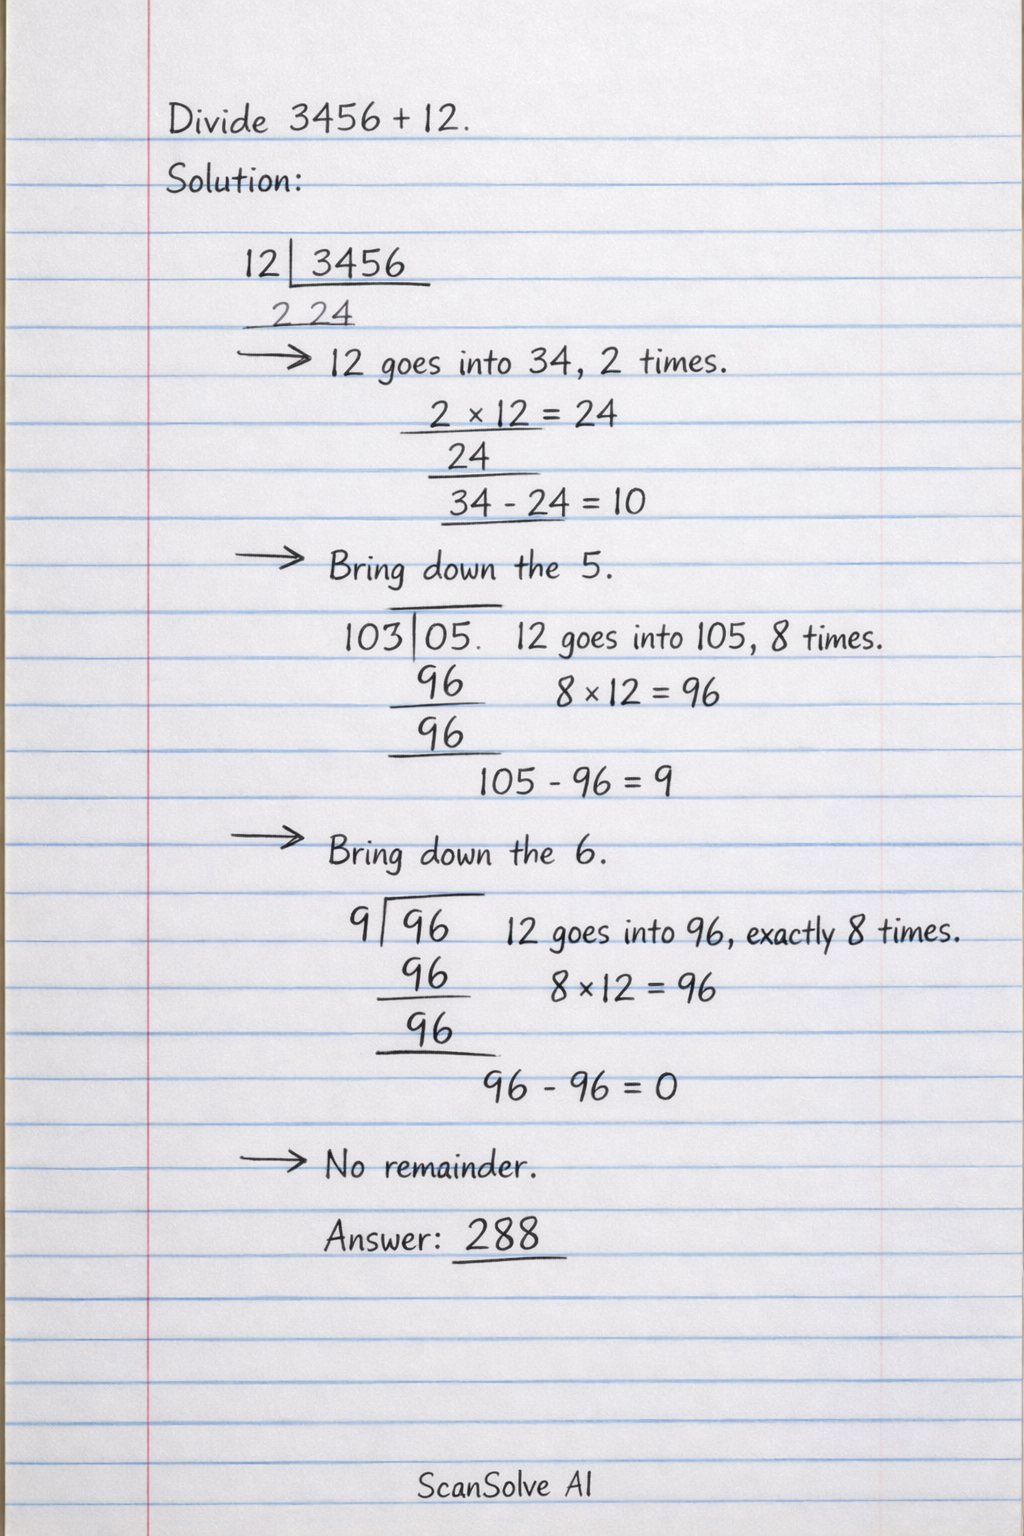 Divide 3456 + 12.
Solution:
12 | 3456
2 24
→ 12 goes into 34, 2 times.
2 × 12 = 24
24
34 - 24 = 10
→ Bring down the 5.
103 | 05. 12 goes into 105, 8 times.
96 8 × 12 = 96
96
105 - 96 = 9
→ Bring down the 6.
9 | 96 12 goes into 96, exactly 8 times.
96 8 × 12 = 96
96
96 - 96 = 0
→ No remainder.
Answer: 288
ScanSolve AI